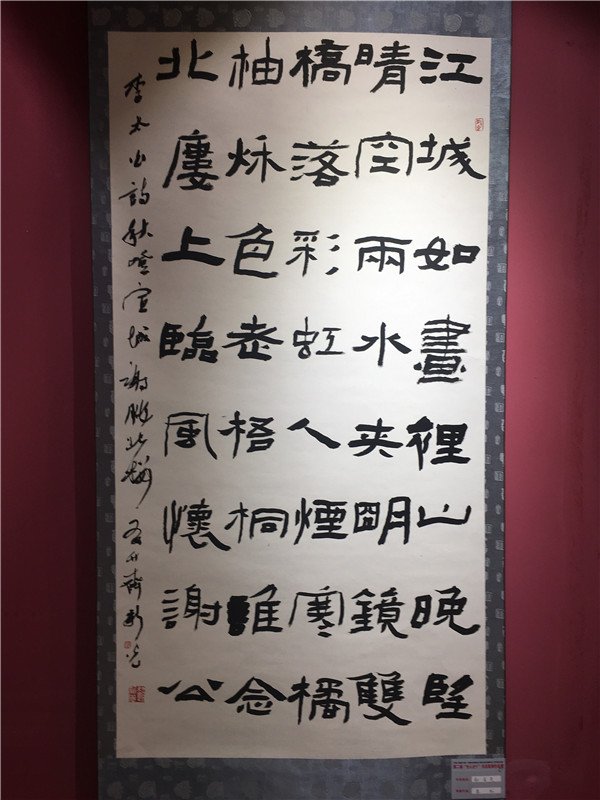 江城如畫裡山晚望
晴空兩水夾明鏡雙
橋落彩虹人煙寒橘
柚秋色老梧桐誰念
北廔上臨風懷謝公
李太白詩秋登宣城謝朓北樓